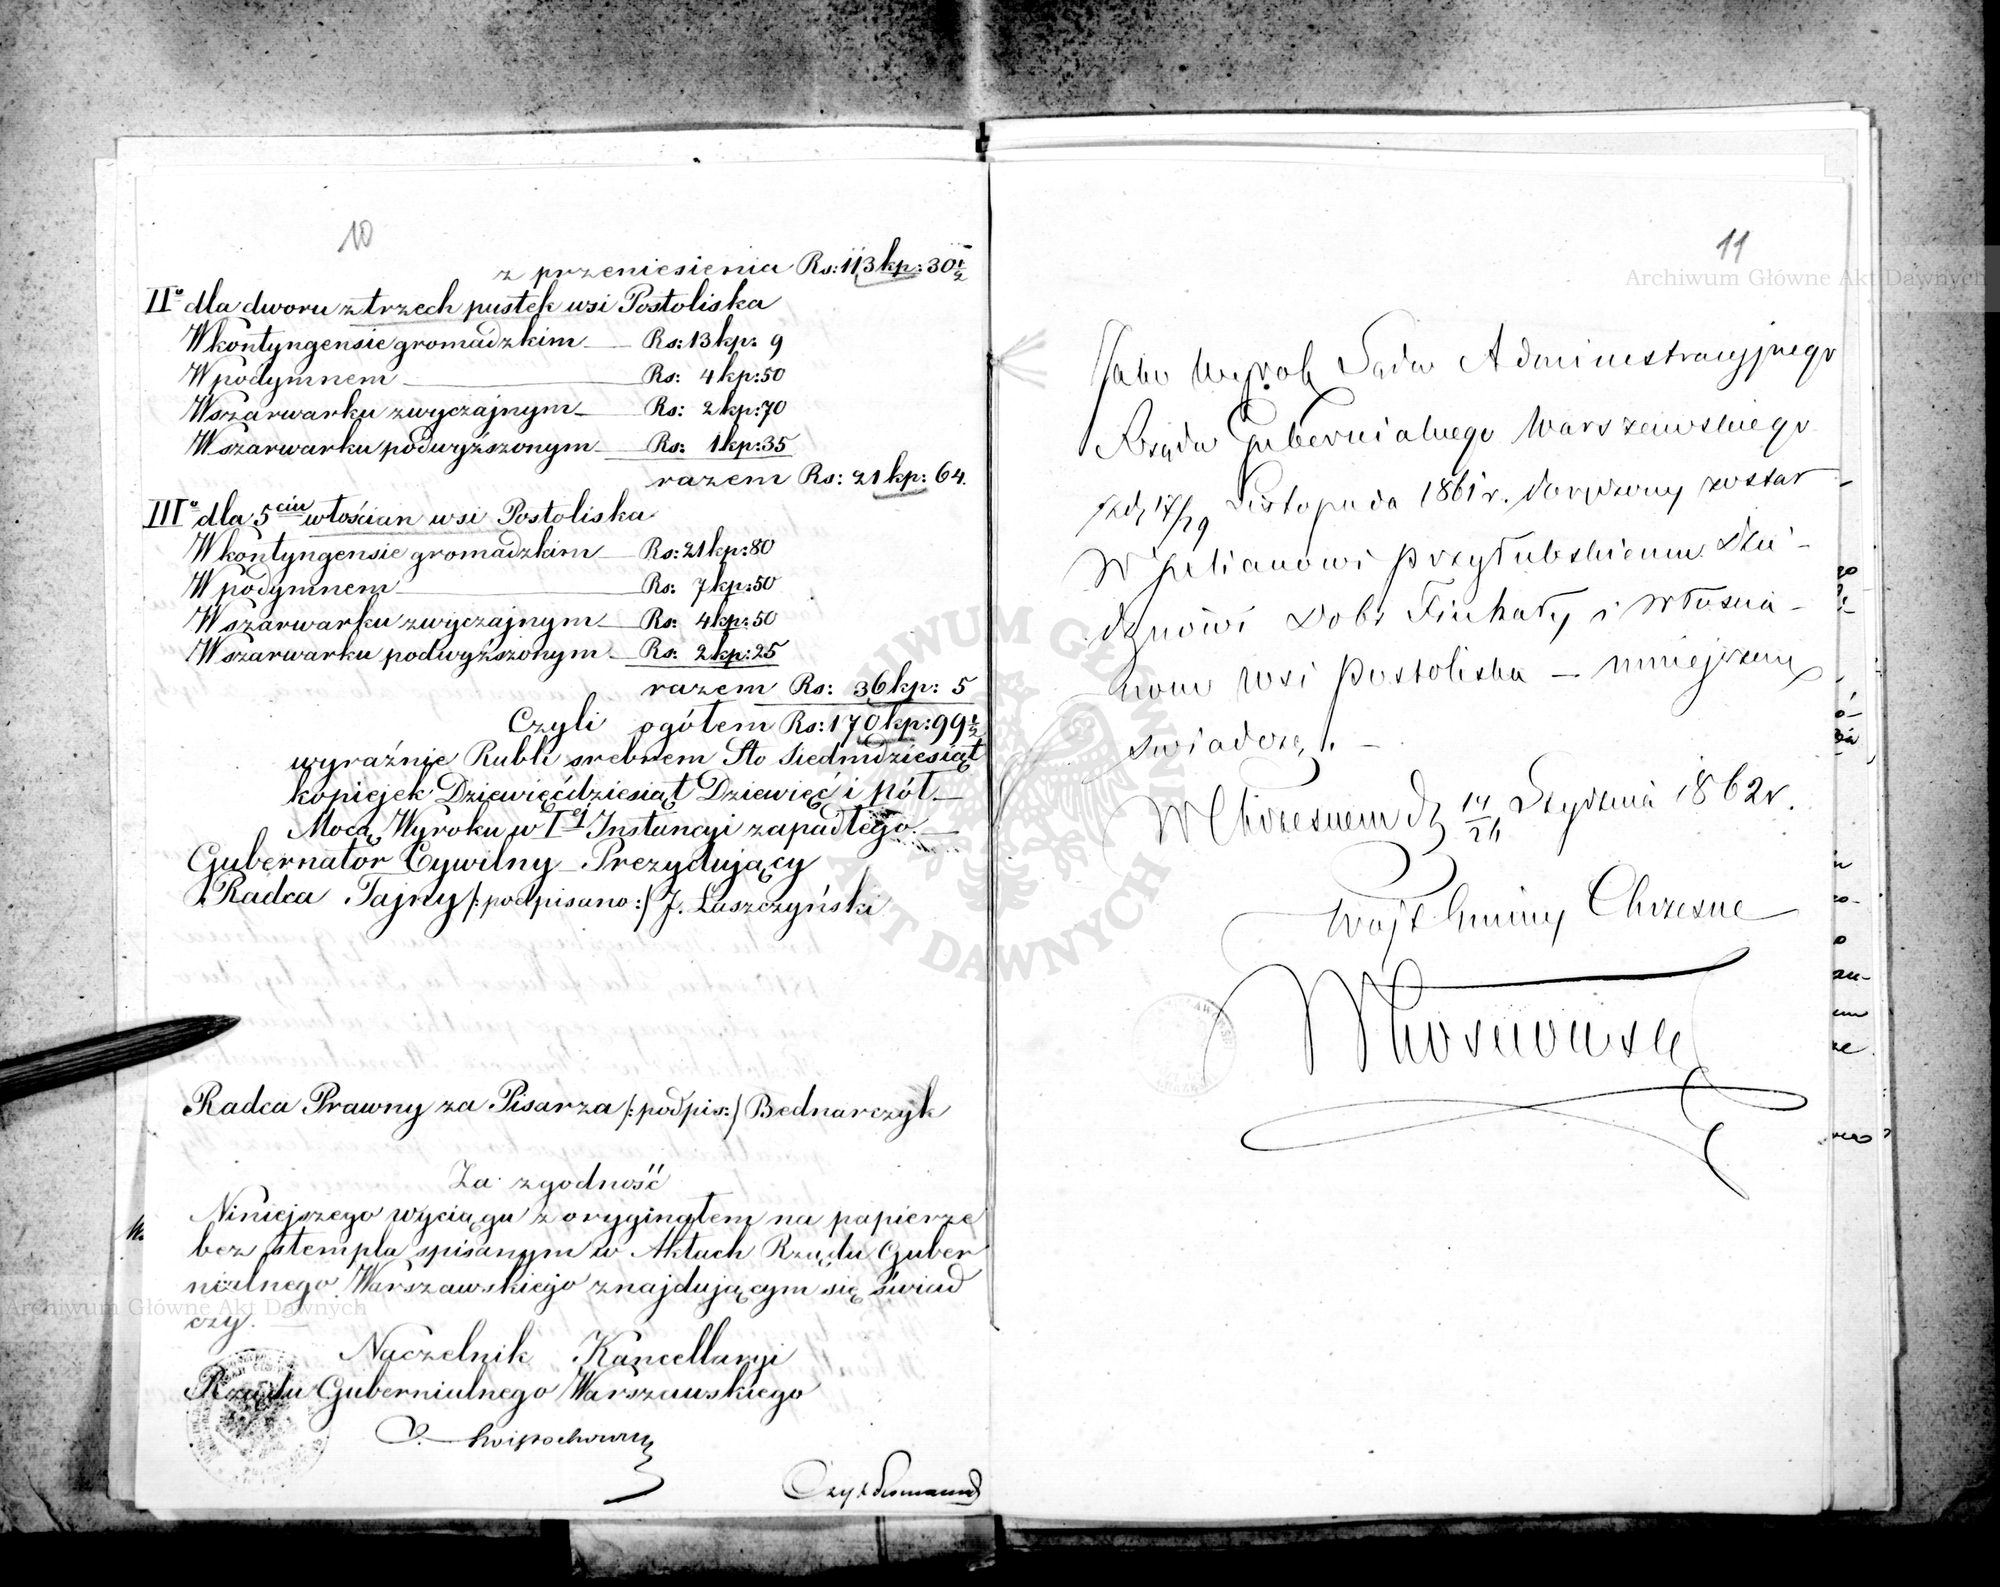 10
z przeniesienia Rs: 113 kp: 30 1/2
IIo dla dworu z trzech pustek wsi Postoliska
W kontyngensie gromadzkim Rs: 13 kp: 9
W podymnem Rs: 4 kp: 50
W szarwarku zwyczajnym Rs: 2 kp: 70
W szarwarku podwyższonym Rs: 1 kp: 35
razem Rs: 21 kp: 64.
IIIo dla 5ciu włościan wsi Postoliska
W kontyngensie gromadzkim Rs: 21 kp: 80
W podymnem Rs: 7 kp: 50
W szarwarku zwyczajnym Rs: 4 kp: 50
W szarwarku podwyższonym Rs: 2 kp: 25
razem Rs: 36 kp: 5
Czyli ogółem Rs: 170 kp: 99 1/2
wyraźnie Rubli srebrem Sto Siedmdziesiąt
kopiejek Dziewięćdziesiąt Dziewięć i pół
Mocą Wyroku w Iej Instancyi zapadłego.
Gubernator Cywilny Prezydujący
Radca Tajny /:podpisano:/ J. Łaszczyński
Radca Prawny za Pisarza /:podpis:/ Bednarczyk
Za zgodność
Niniejszego wyciągu z oryginałem na papierze
bez stempla spisanym w Aktach Rządu Guber
nialnego Warszawskiego znajdującym się świad
czy.
Naczelnik Kancellaryi
Rządu Gubernialnego Warszawskiego
11
Jako Wyrok Sądu Administracyjnego
Rządu Gubernialnego Warszawskiego
z d. 17/29 Listopada 1861 r. doręczony został
W Julianowi Przyłubskiemu Dzie-
dzicowi Dobr Fiukały i Włościa-
nom wsi Postoliska – niniejszem
świadczę. –
W Chrzesnem d. 14/26 Stycznia 1862 r.
Wójt Gminy Chrzesne
Archiwum Główne Akt Dawnych
Archiwum Główne Akt Dawnych
ARCHIWUM GŁÓWNE AKT DAWNYCH